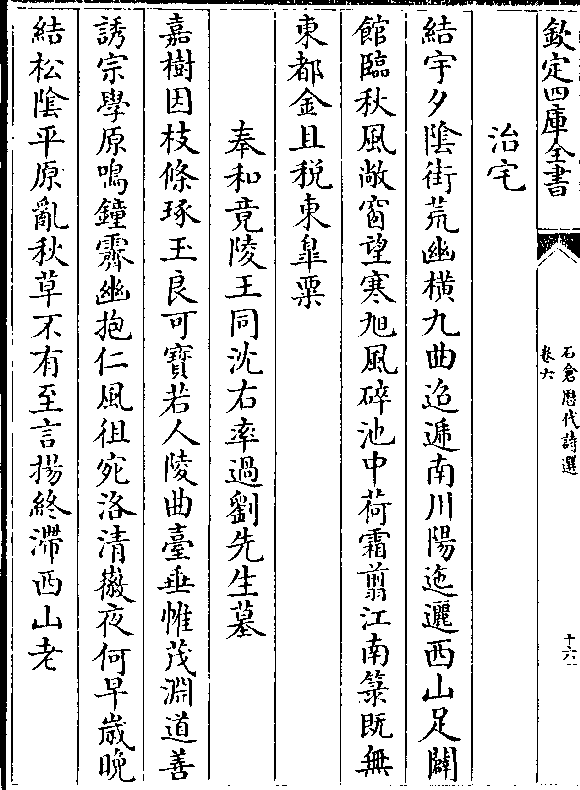 欽定四庫全書
石倉歴代詩選
卷六
十六
治宅
結宇夕陰街荒幽横九曲迢遞南川陽迤邐西山足闢
館臨秋風敞窗望寒旭風碎池中荷霜翦江南菉既無
東都金且税東臯粟
奉和竟陵王同沈右率過劉先生墓
嘉樹因枝條琢玉良可寳若人陵曲臺垂帷茂淵道善
誘宗學原鳴鐘霽幽抱仁風徂宛洛清徽夜何早嵗晚
結松隂平原亂秋草不有至言揚終滯西山老